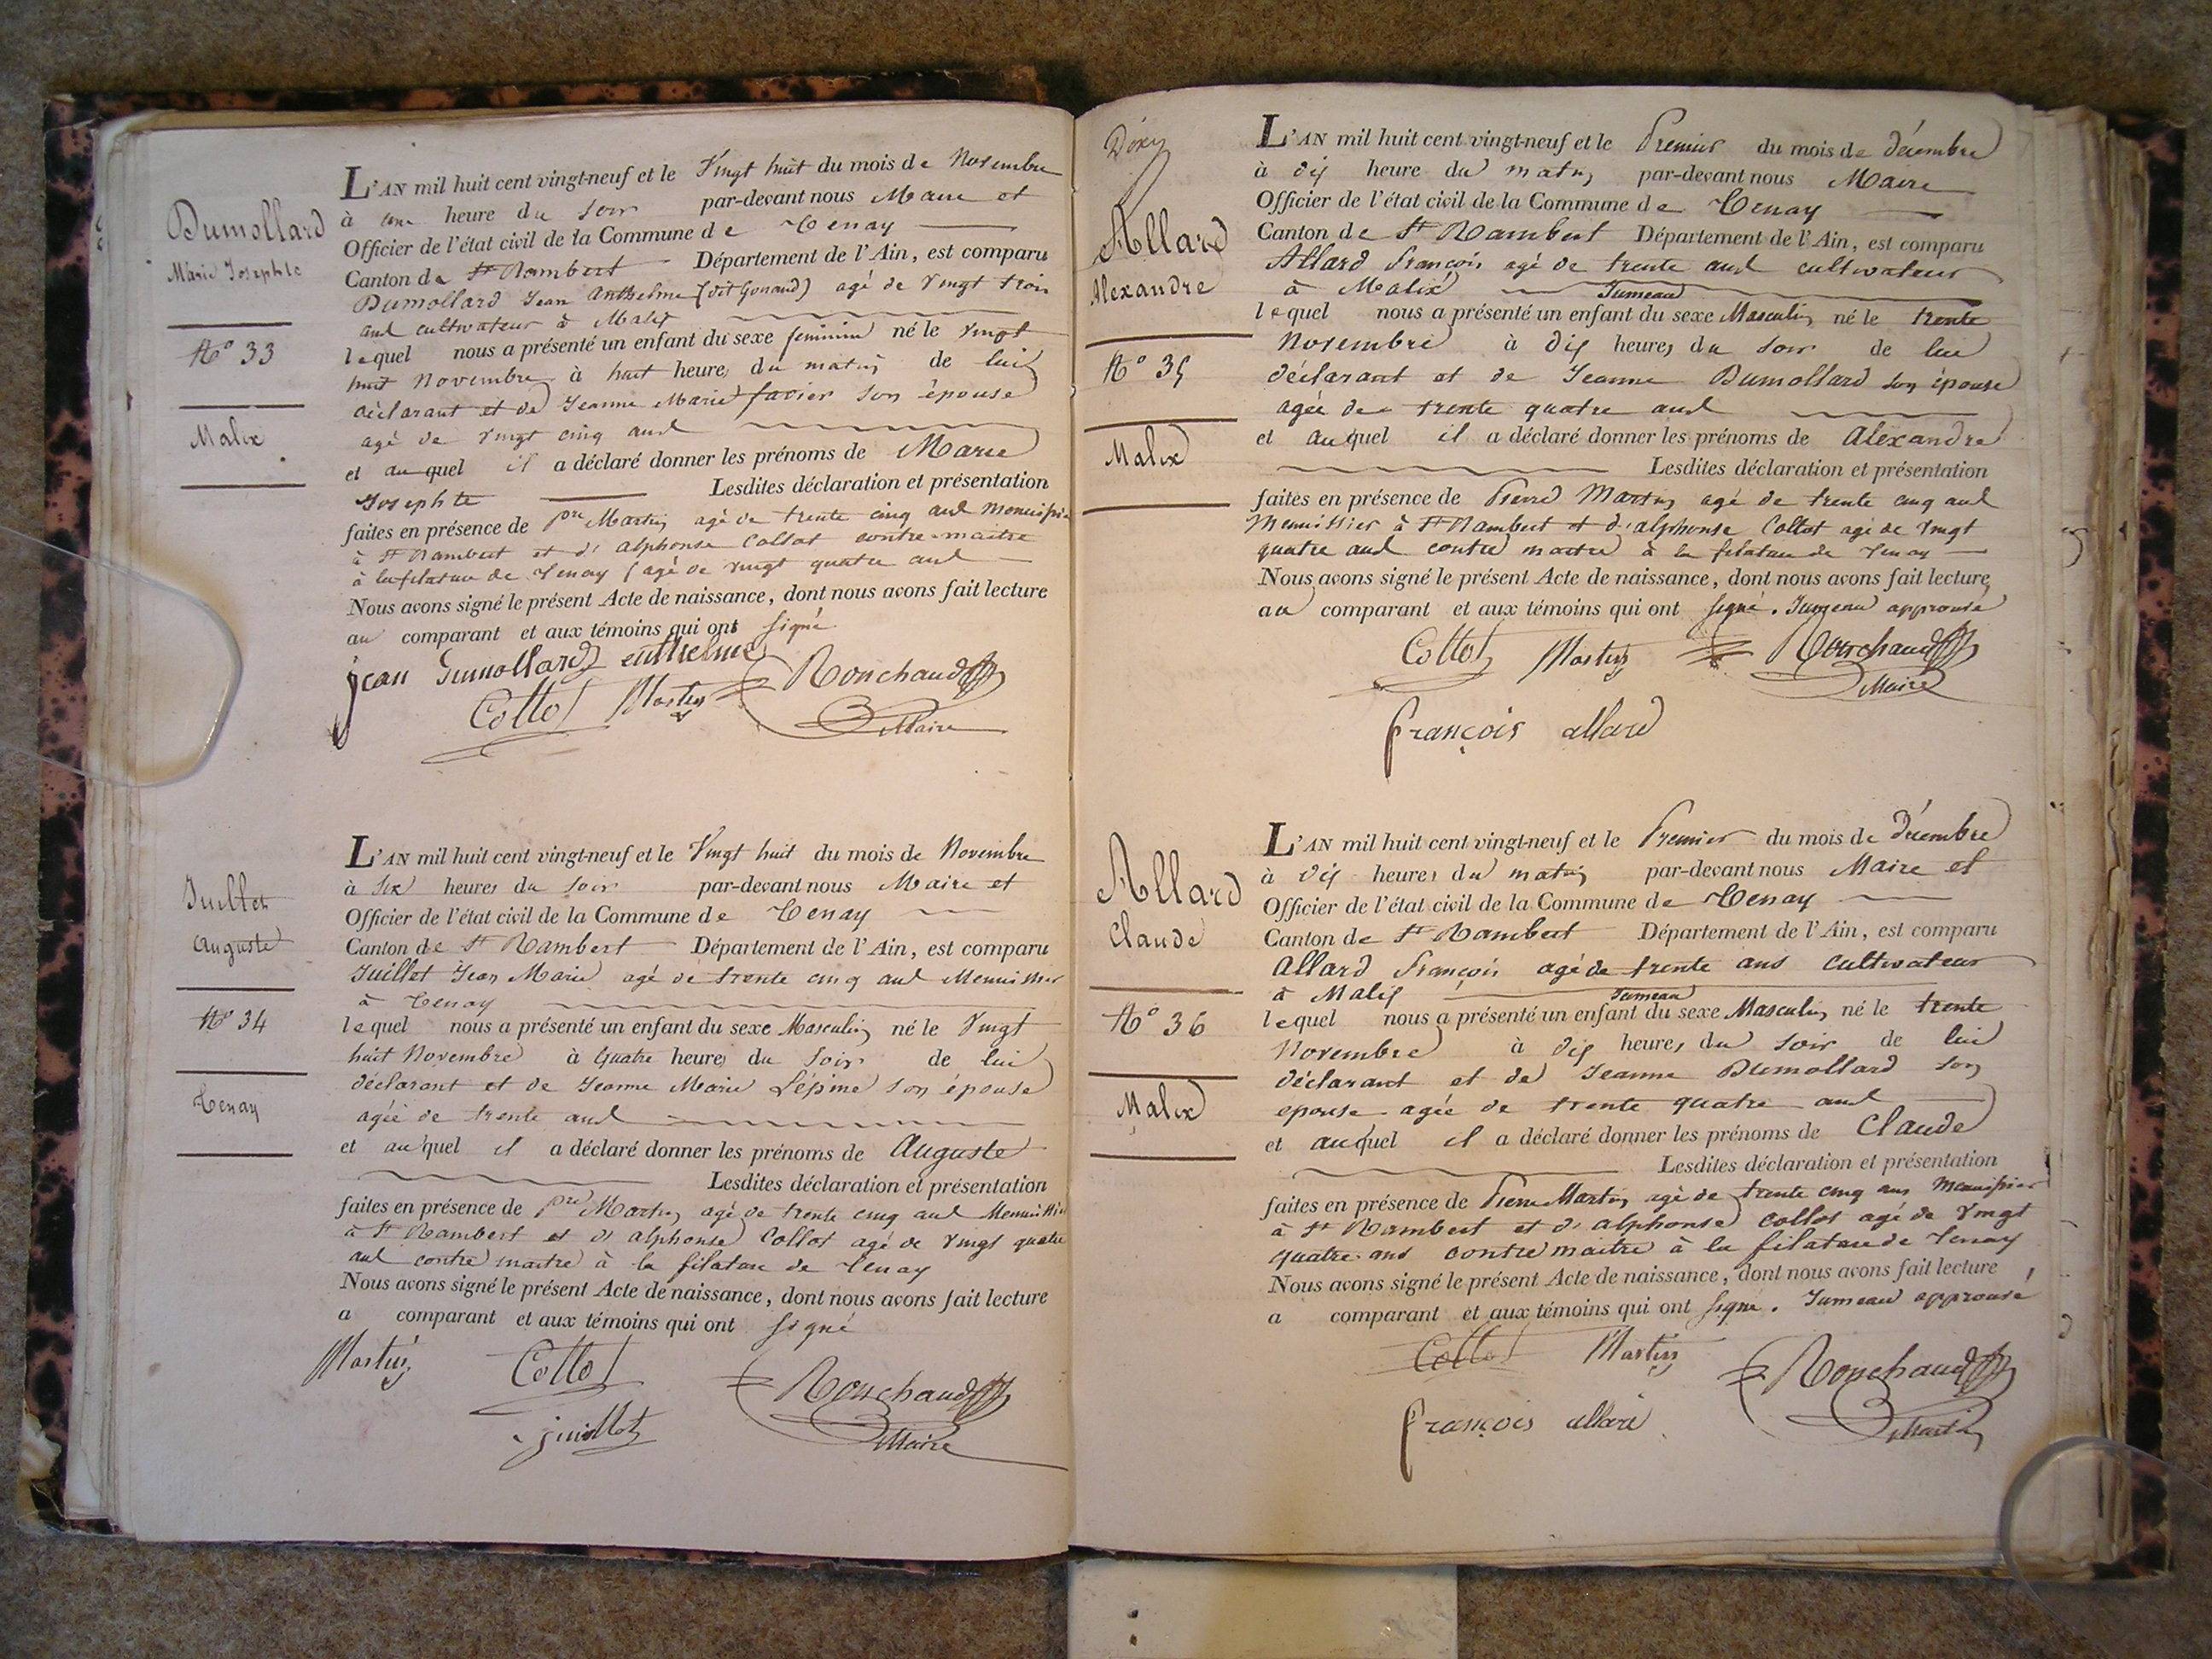 Dumollard
Marie Josephte
N° 33
Malix
L'AN mil huit cent vingt-neuf et le Vingt huit du mois de Novembre
à une heure du soir par-devant nous Maire et
Officier de l'état civil de la Commune de Tenay
Canton de St Rambert Département de l'Ain, est comparu
Dumollard Jean Anthelme (dit Gonaud) agé de Vingt trois
ans cultivateur à Malix
lequel nous a présenté un enfant du sexe feminin né le vingt
huit Novembre à huit heures du matin de lui
déclarant et de Jeanne Marie favier son épouse
agé de vingt cinq ans
et au quel il a déclaré donner les prénoms de Marie
Josephte Lesdites déclaration et présentation
faites en présence de pre Martin agé de trente cinq ans
à St Rambert et d'alphonse Collot contre-maitre
à la filature de Tenay (agé de vingt quatre ans
Nous avons signé le présent Acte de naissance, dont nous avons fait lecture
au comparant et aux témoins qui ont signé
jean Dumollard enthelme
Collot Martin Ronchaud
Maire
Juillet
Auguste
N° 34
Tenay
L'AN mil huit cent vingt-neuf et le Vingt huit du mois de Novembre
à six heures du soir par-devant nous Maire et
Officier de l'état civil de la Commune de Tenay
Canton de St Rambert Département de l'Ain, est comparu
Juillet Jean Marie agé de trente cinq ans Menuisier
à Tenay
lequel nous a présenté un enfant du sexe Masculin né le Vingt
huit Novembre à quatre heures du soir de lui
déclarant et de Jeanne Marie Lépine son épouse
agée de trente ans
et au quel il a déclaré donner les prénoms de Auguste
Lesdites déclaration et présentation
faites en présence de pre Martin agé de trente cinq ans
à St Rambert et d'alphonse Collot agé de vingt quatre
ans contre maitre à la filature de Tenay
Nous avons signé le présent Acte de naissance, dont nous avons fait lecture
a comparant et aux témoins qui ont signé
Martin Collot Ronchaud
juillet Maire
Allard
Alexandre
N° 35
Malix
L'AN mil huit cent vingt-neuf et le Premier du mois de décembre
à dix heure du matin par-devant nous Maire
Officier de l'état civil de la Commune de Tenay
Canton de St Rambert Département de l'Ain, est comparu
Allard françois agé de trente ans cultivateur
à Malix Jumeau
lequel nous a présenté un enfant du sexe Masculin né le trente
Novembre à dix heures du soir de lui
déclarant et de Jeanne Dumollard son épouse
agée de trente quatre ans
et au quel il a déclaré donner les prénoms de Alexandre
Lesdites déclaration et présentation
faites en présence de Pierre Martin agé de trente cinq ans
Menuissier à St Rambert et d'alphonse Collot agé de vingt
quatre ans contre maitre à la filature de Tenay
Nous avons signé le présent Acte de naissance, dont nous avons fait lecture
au comparant et aux témoins qui ont signé. Jumeau approuvé
Collot Martin Ronchaud
Maire
françois allard
Allard
Claude
N° 36
Malix
L'AN mil huit cent vingt-neuf et le Premier du mois de Décembre
à dix heures du matin par-devant nous Maire et
Officier de l'état civil de la Commune de Tenay
Canton de St Rambert Département de l'Ain, est comparu
Allard françois agé de trente ans cultivateur
à Malix Jumeau
lequel nous a présenté un enfant du sexe Masculin né le trente
Novembre à dix heures du soir de lui
déclarant et de Jeanne Dumollard son
epouse agée de trente quatre ans
et au quel il a déclaré donner les prénoms de Claude
Lesdites déclaration et présentation
faites en présence de Pierre Martin agé de trente cinq ans
à St Rambert et d'alphonse Collot agé de vingt
quatre ans contre maitre à la filature de Tenay
Nous avons signé le présent Acte de naissance, dont nous avons fait lecture
a comparant et aux témoins qui ont signé. Jumeau approuvé
Collot Martin Ronchaud
françois allard